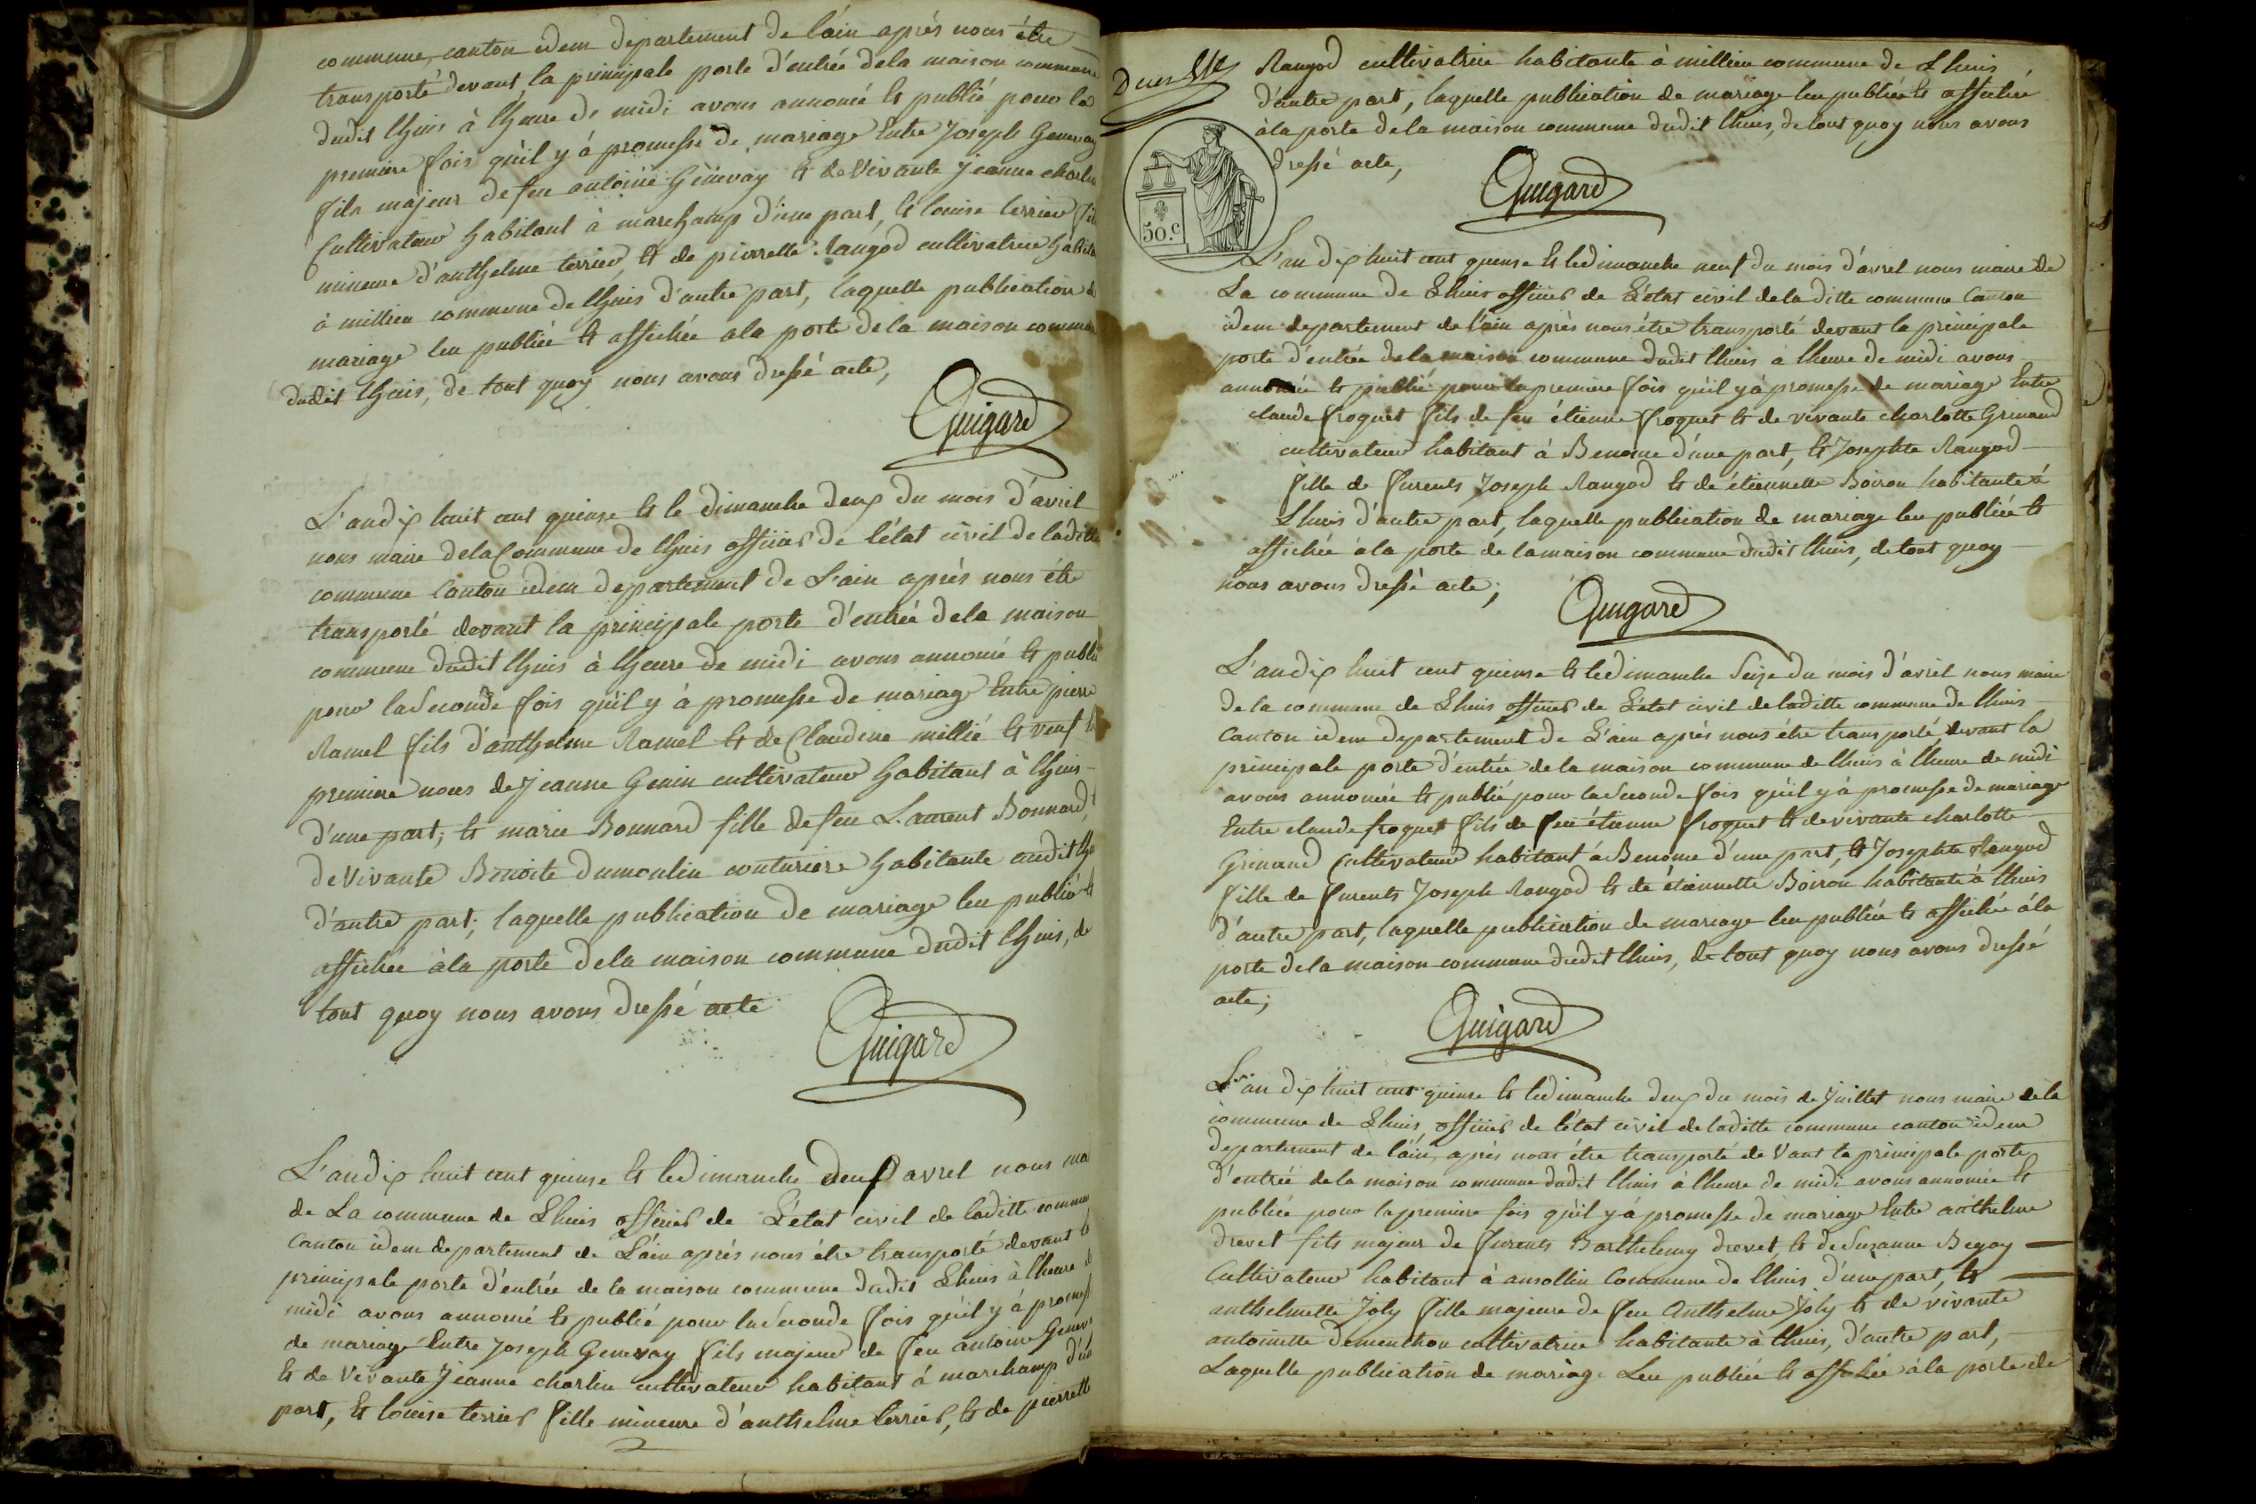 commune, canton idem departement de l'ain après nous être
transporté devant la principale porte d'entrée de la maison commune
dudit lhuis à lheure de midi avons annoncé et publié pour la
premiere fois qu'il y à promesse de mariage Entre Joseph Genevay
fils majeur de feu antoine Genevay et de vivante jeanne charlin
Cultivateur habitant à marchamp d'une part, et louise terrier
mineure d'anthelme terrier, et de pierrette Rangod cultivatrice
à millieu commune de lhuis d'autre part, laquelle publication de
mariage leu publiée et affichée a la porte de la maison commune
dudit lhuis, de tout quoy nous avons dressé acte,
Guigard
L'an dix huit cent quinse et le dimanche deux du mois d'avril
nous maire de la Commune de lhuis officier de l'état civil de laditte
commune Canton idem departement de L'ain après nous être
transporté devant la principale porte d'entrée de la maison
commune dudit lhuis à lheure de midi avons annoncé et publié
pour la Seconde fois qu'il y à promesse de mariage Entre pierre
Ramel fils d'anthelme Ramel et de Claudine millié et veuf
premiere noces de Jeanne Genin cultivateur habitant à lhuis
d'une part; et marie Bonnard fille de feu Laurent Bonnard,
de vivante Benoite Dumoulin couturiere habitante audit
d'autre part; laquelle publication de mariage leu publié et
affichée à la porte de la maison commune dudit lhuis, de
tout quoy nous avons dressé acte
Guigard
L'an dix huit cent quinse et le dimanche deux avril nous
de La commune de Lhuis officier de L'état civil de laditte commune
Canton idem departement de L'ain après nous être transporté devant
principale porte d'entrée de la maison commune dudit Lhuis à lheure
midi avons annoncé et publié pour la Seconde fois qu'il y à promesse
de mariage Entre Joseph Genevay fils majeur de feu antoine
et de vivante Jeanne charlin cultivateur habitant à marchamp
part, et louise terrier fille mineure d'anthelme terrier, et de pierrette
Rangod cultivatrice habitante à millieu commune de Lhuis
d'autre part, laquelle publication de mariage leu publiée et affiché
à la porte de la maison commune dudit lhuis, de tout quoy nous avons
dressé acte,
Guigard
50.c
L'an dix huit cent quinse et le dimanche neuf du mois d'avril nous maire de
La commune de Lhuis officier de L'état civil de la ditte commune Canton
idem departement de l'ain après nous être transporté devant la principale
porte d'entrée de la maison commune dudit lhuis à lheure de midi avons
annoncée et publié pour la premiere fois qu'il y à promesse de mariage Entre
claude froquet fils de feu étienne froquet et de vivante charlotte Grinand
cultivateur habitant à Benonce d'une part, et Josephte Rangod
fille de Joseph Rangod et de étiennette Boiron habitante à
Lhuis d'autre part, laquelle publication de mariage leu publiée et
affichée à la porte de la maison commune dudit lhuis, de tout quoy
nous avons dressé acte;
Guigard
L'an dix huit cent quinse et le dimanche Seize du mois d'avril nous maire
de la commune de Lhuis officier de L'état civil de laditte commune de lhuis
Canton idem departement de L'ain après nous être transporté devant la
principale porte d'entrée de la maison commune de lhuis à lheure de midi
avons annoncée et publié pour la Seconde fois qu'il y à promesse de mariage
Entre claude froquet fils de feu étienne froquet et de vivante charlotte
Grinand Cultivateur habitant à Benonce d'une part, et Josephte Rangod
fille de Joseph Rangod et de étiennette Boiron habitante à lhuis
d'autre part, laquelle publication de mariage leu publiée et affichée à la
porte de la maison commune dudit lhuis, de tout quoy nous avons dressé
acte;
Guigard
L'an dix huit cent quinse et le dimanche deux du mois de Juillet nous maire de la
commune de Lhuis, officier de l'état civil de laditte commune canton idem
departement de l'ain, après nous être transporté de Vant la principale porte
d'entrée de la maison commune dudit lhuis à lheure de midi avons annoncée et
publiée pour la premiere fois qu'il y à promesse de mariage Entre anthelme
drevet fils majeur de Barthelemy drevet, et de Suzanne Begoy
Cultivateur habitant à ansollin Commune de lhuis d'une part, et
anthelmette Joly fille majeure de feu Anthelme Joly et de vivante
antoinette dementhon cultivatrice habitante à lhuis, d'autre part,
Laquelle publication de mariage Leu publiée et affichée à la porte de